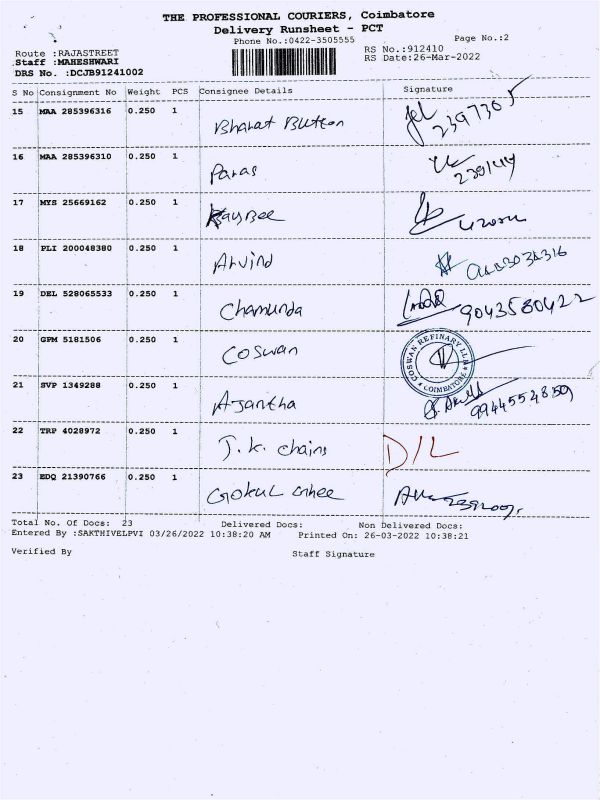 THE PROFESSIONAL COURIERS, Coimbatore
Delivery Runsheet - PCT
Phone No.:0422-3505555
Page No.:2
Route :RAJASTREET
RS No.:912410
Staff :MAHESHWARI
RS Date:26-Mar-2022
DRS No. :DCJB91241002
S No Consignment No Weight PCS Consignee Details Signature
15 MAA 285396316 0.250 1 Bharat Button 2397305
16 MAA 285396310 0.250 1 Paras
17 MYS 25669162 0.250 1 Kaybee
18 PLI 200048380 0.250 1 Arvind
19 DEL 528065533 0.250 1 Chamunda 9043580422
20 GPM 5181506 0.250 1 Coswan COSWAN REFINARY LLP COIMBATORE
21 SVP 1349288 0.250 1 Ajantha 9944554859
22 TRP 4028972 0.250 1 J.K. chains D/L
23 EDQ 21390766 0.250 1 Gokul Ghee
Total No. Of Docs: 23 Delivered Docs: Non Delivered Docs:
Entered By :SAKTHIVELPVI 03/26/2022 10:38:20 AM Printed On: 26-03-2022 10:38:21
Verified By Staff Signature